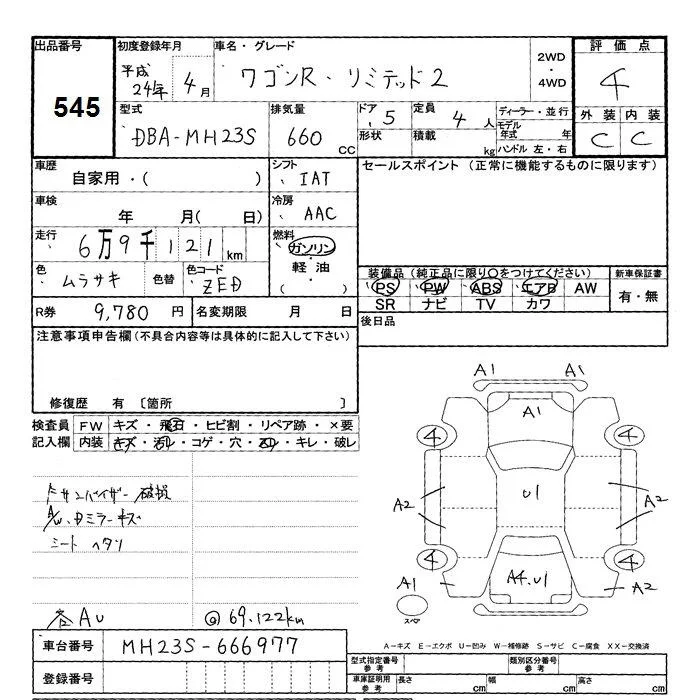 出品番号 初度登録年月 車名・グレード 2WD・4WD 評価点
545 平成24年4月 ワゴンR・リミテッド2 4
型式 排気量 ドア 定員 ディーラー・並行 外装 内装
DBA-MH23S 660 CC 5 4人 モデル年式 年 C C
形状 積載 kg ハンドル 左・右
車歴 シフト セールスポイント (正常に機能するものに限ります)
自家用・( ) IAT
車検 冷房
年 月( 日) AAC
走行 6万9千121km 燃料 ガソリン・軽油・( )
色 ムラサキ 色替 色コード ZED
装備品(純正品に限り○をつけてください) 新車保証書
PS PW ABS エアB AW 有・無
SR ナビ TV カワ
R券 9,780 円 名変期限 月 日 後日品
注意事項申告欄(不具合内容等は具体的に記入して下さい)
修復歴 有 〔箇所 〕
検査員 FW キズ・飛石・ヒビ割・リペア跡・×要
記入欄 内装 キズ・汚レ・コゲ・穴・・キレ・破レ
サンバイザー破損
A/W、Dミラーキズ
シート ヘタリ
各AU @69.122km
A1 A1
A1
4 4
A2 U1 A2
4 4
A1 A4.U1 A2
スペア
車台番号 MH23S-666977
A-キズ E-エクボ U-凹み W-補修跡 S-サビ C-腐食 XX-交換済
登録番号 型式指定番号 参考 類別区分番号 参考
車庫証明用 参考 長さ cm 幅 cm 高さ cm